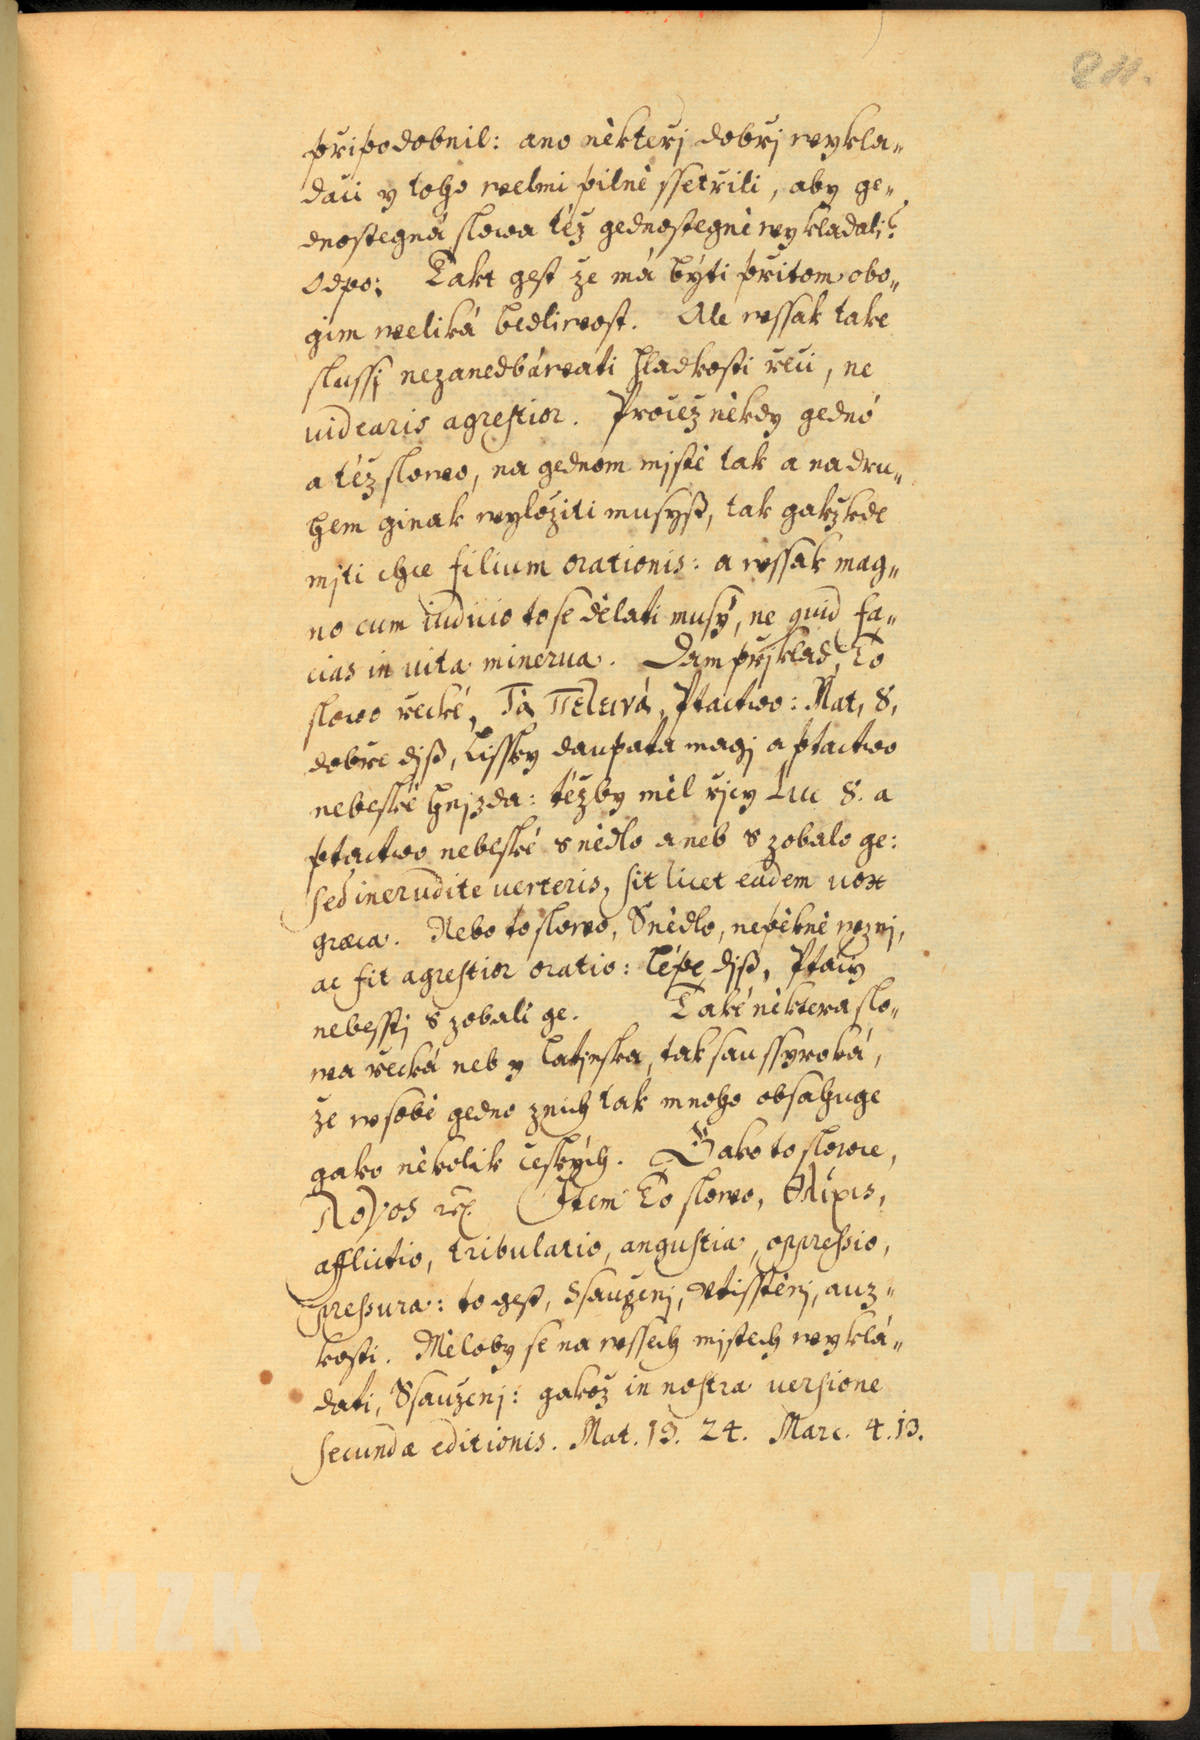 211.
připodobnil: ano někteřj dobřj wykla„
dači y toho welmi pilně ssetřili, aby ge„
dnostegná slowa též gednostegně wykládali?
Odpo: Takt gest že má býti přitom obo„
gim weliká bedliwost. Ale wssak take
slussj nezanedbáwati hladkosti řeči, ne
uidearis agrestior. Pročež někdy gednó
a též slowo, na gednom mjstě tak a na dru„
hém ginak wyložiti musyß, tak gakžkde
mjti chce filium orationis: a wssak mag„
no cum iudicio to se dělati musý, ne quid fa„
cias in uita minerua. Dam přjklad, To
slowo řecké, Τὰ πελεινά, Ptactwo: Mat, 8,
dobře djß, Lissky daupata magj a ptactwo
nebeské hnjzda: téžby měl řjcy Luc 8. a
ptactwo nebeské snědlo aneb szobalo ge:
sed inerudite uerteris, sit licet eadem uox
græca. Nebo to slowo, Snědlo, nepěkně wznj,
ac fit agrestior oratio: lépe djß, Ptácy
nebesstj szobali ge. Také některa slo„
wa řecká neb y latjnska, tak sau ssyroká,
že w sobě gedno znich tak mnoho obsahuge
gako několik českých. Gako to slowce,
Λογος etc. Item To slowo, θλίψις,
afflictio, tribulatio, angustia, oppressio,
pressura: to gest, Ssauženj, Utisstěnj, auz„
kosti. Měloby se na wssech mjstech wyklá„
dati, Ssauženj: gakož in nostra uersione
secundæ editionis. Mat. 13. 24. Marc. 4. 13.
MZK MZK